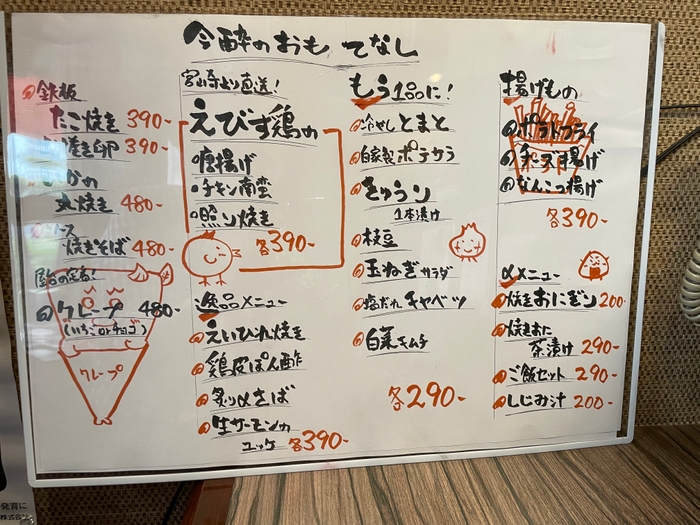 今酔のおもてなし
鉄板
たこ焼き 390-
焼き卵 390-
いかの
丸焼き 480-
ソース
焼きそば 480-
屋台の定番!
クレープ 480-
(いちごorチョコ)
クレープ
宮崎より直送!
えびす鶏の
・唐揚げ
・チキン南蛮
・照り焼き
各390-
逸品メニュー
えいひれ焼き
鶏皮ぽん酢
炙り〆さば
生サーモンの
ユッケ 各390-
もう1品に!
冷やしとまと
自家製ポテサラ
きゅうり
1本漬け
枝豆
玉ねぎサラダ
塩だれキャベツ
白菜キムチ
各290-
揚げもの
ポテトフライ
チーズ揚げ
なんこつ揚げ
各390-
〆メニュー
焼きおにぎり 200-
焼きおに
茶漬け 290-
ご飯セット 290-
しじみ汁 200-
発育に
株式会社